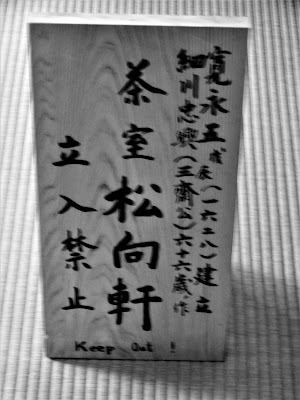 寛永五戊辰(一六二八)建立
細川忠興(三齋公)六十六歳作
茶室松向軒
立入禁止
Keep Out !